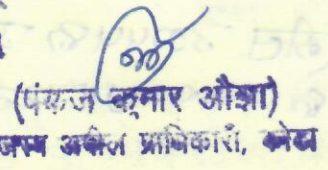 (पंकज कुमार ओझा)
प्रथम अपील प्राधिकारी, कोटा